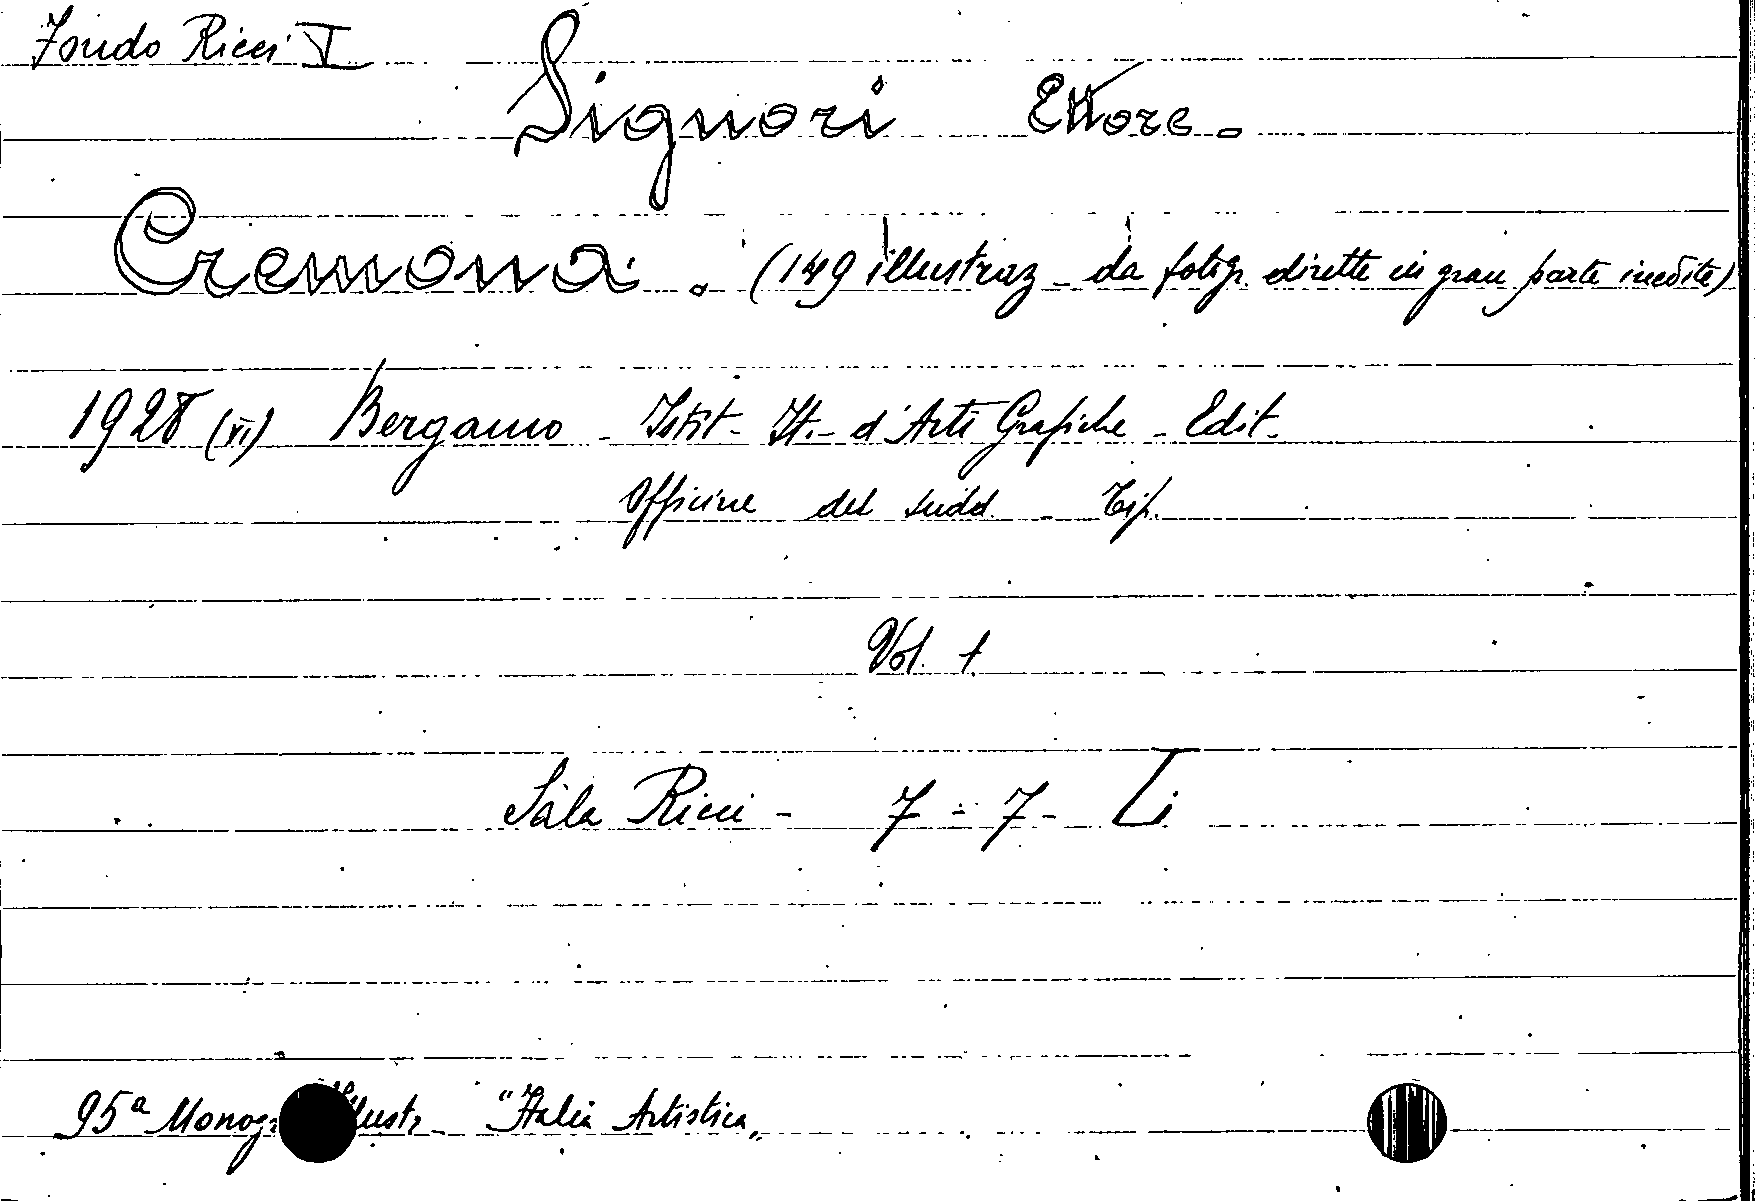 Fondo Ricci V
Signori Ettore.
Cremona. (149 illustraz - da fotogr. dirette in gran parte inedite)
1928 (VI) Bergamo - Istit - It. - d'Arti Grafiche - Edit.
Officine del sudd. - Tip.
Vol. 1
Sala Ricci - 7 - 7 -
95ª Monogr. Illustr - "Italia Artistica"